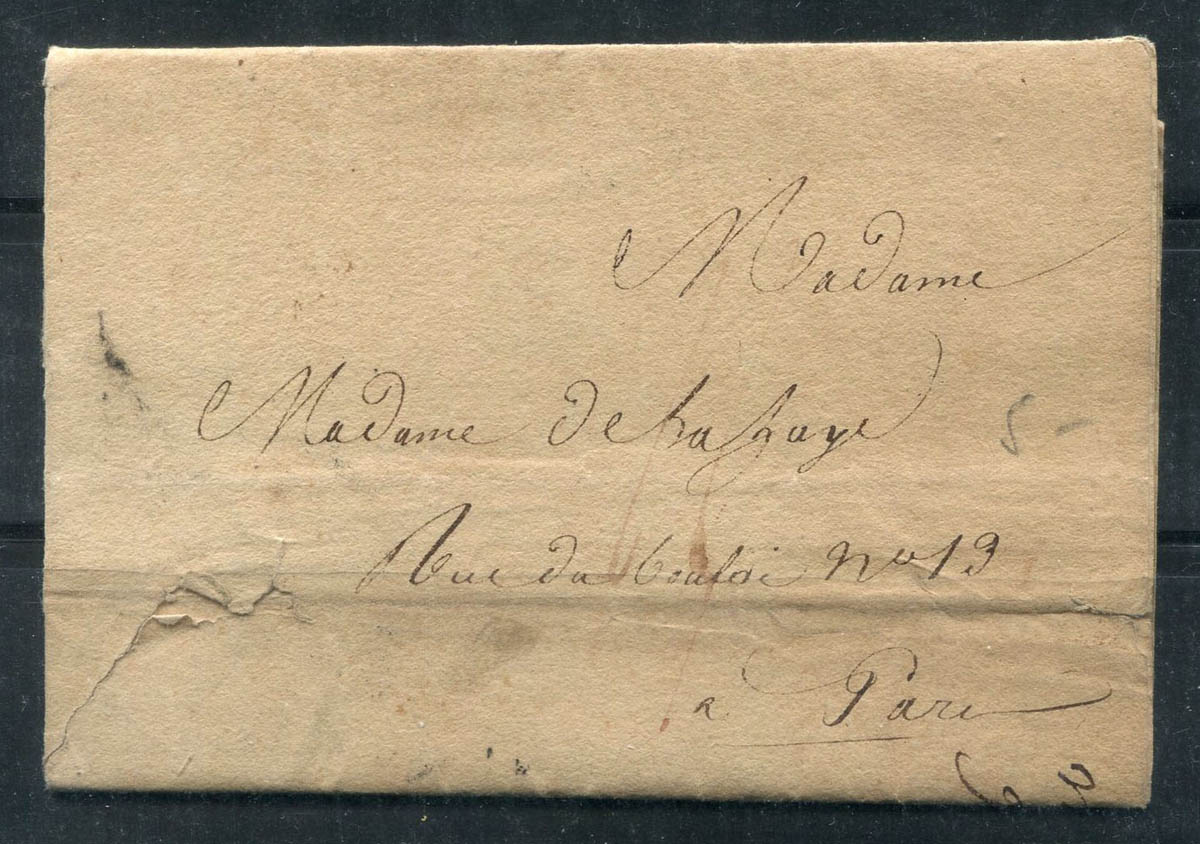 Madame
Madame de La faye
Rue du bouloi no 13
a Paris
5 -